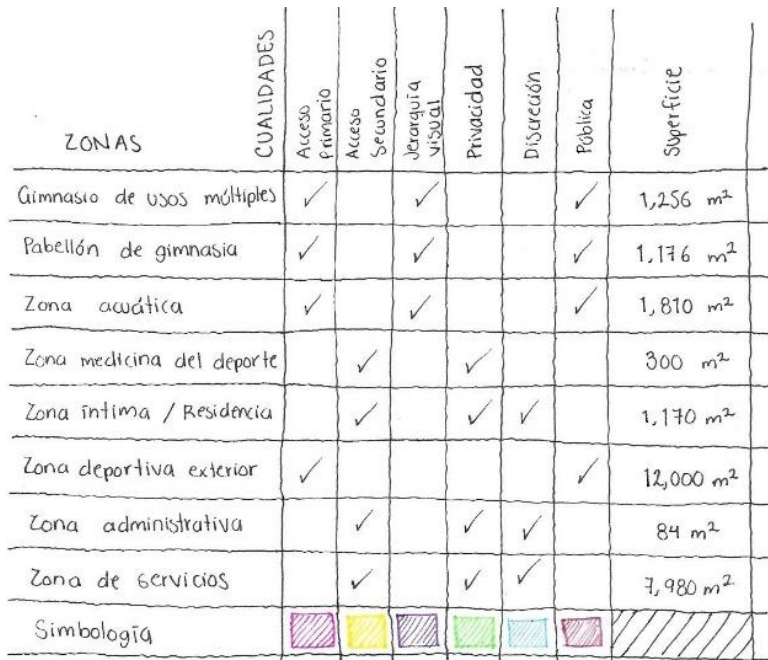 ZONAS
CUALIDADES
Acceso Primario
Acceso Secundario
Jerarquía visual
Privacidad
Discreción
Pública
Superficie
Gimnasio de usos múltiples ✓ ✓ ✓ 1,256 m²
Pabellón de gimnasia ✓ ✓ ✓ 1,176 m²
Zona acuática ✓ ✓ ✓ 1,810 m²
Zona medicina del deporte ✓ ✓ 300 m²
Zona íntima / Residencia ✓ ✓ ✓ 1,170 m²
Zona deportiva exterior ✓ ✓ 12,000 m²
Zona administrativa ✓ ✓ ✓ 84 m²
Zona de servicios ✓ ✓ ✓ 7,980 m²
Simbología